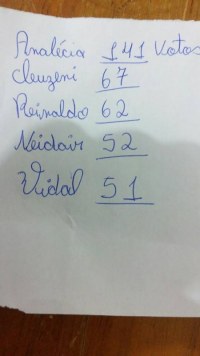 Analécia 141 Votos
Cleuzeni 67
Reinaldo 62
Neidair 52
Vidal 51